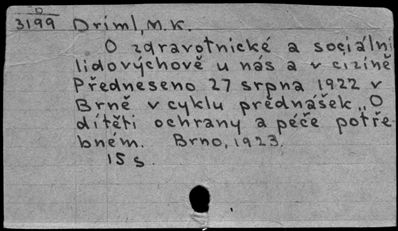 D
3199 Dríml, M. K.
O zdravotnické a sociální
lidovýchově u nás a v cizině
Předneseno 27 srpna 1922 v
Brně v cyklu přednášek „O
dítěti ochrany a péče potře-
bném. Brno, 1923.
15 s.